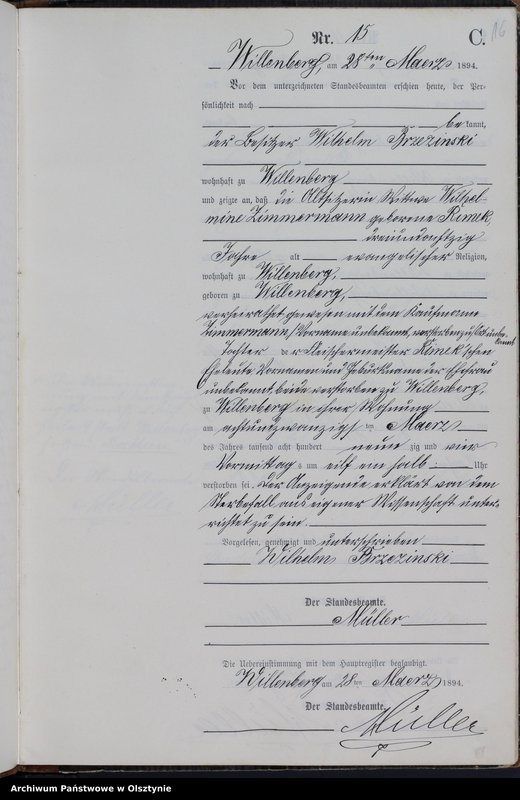 16
Nr. 15
C.
Willenberg, am 28ten Maerz 1894.
Vor dem unterzeichneten Standesbeamten erschien heute, der Per-
sönlichkeit nach
be kannt,
der Besitzer Wilhelm Brzezinski
wohnhaft zu Willenberg
und zeigte an, daß die Altsitzerin Wittwe Wilhel-
mine Zimmermann geborene Rimek,
dreiundachtzig
Jahre alt evangelischer Religion,
wohnhaft zu Willenberg,
geboren zu Willenberg,
verheirathet gewesen mit dem Kaufmann
Zimmermann, Vorname unbekannt, verstorben zu Ort unbe-
kannt
Tochter der Fleischermeister Rimek'schen
Eheleute Vornamen und Geburtsname der Ehefrau
unbekannt beide verstorben zu Willenberg,
zu Willenberg in ihrer Wohnung
am achtundzwanzigsten Maerz
des Jahres tausend acht hundert neun zig und vier
Vormittags um eilf ein halb Uhr
verstorben sei, der Anzeigende erklärt von dem
Sterbefall aus eigener Wissenschaft unter-
richtet zu sein.
Vorgelesen, genehmigt und unterschrieben
Wilhelm Brzezinski
Der Standesbeamte.
Müller
Die Uebereinstimmung mit dem Hauptregister beglaubigt.
Willenberg am 28ten Maerz 1894.
Der Standesbeamte.
Müller
Archiwum Państwowe w Olsztynie